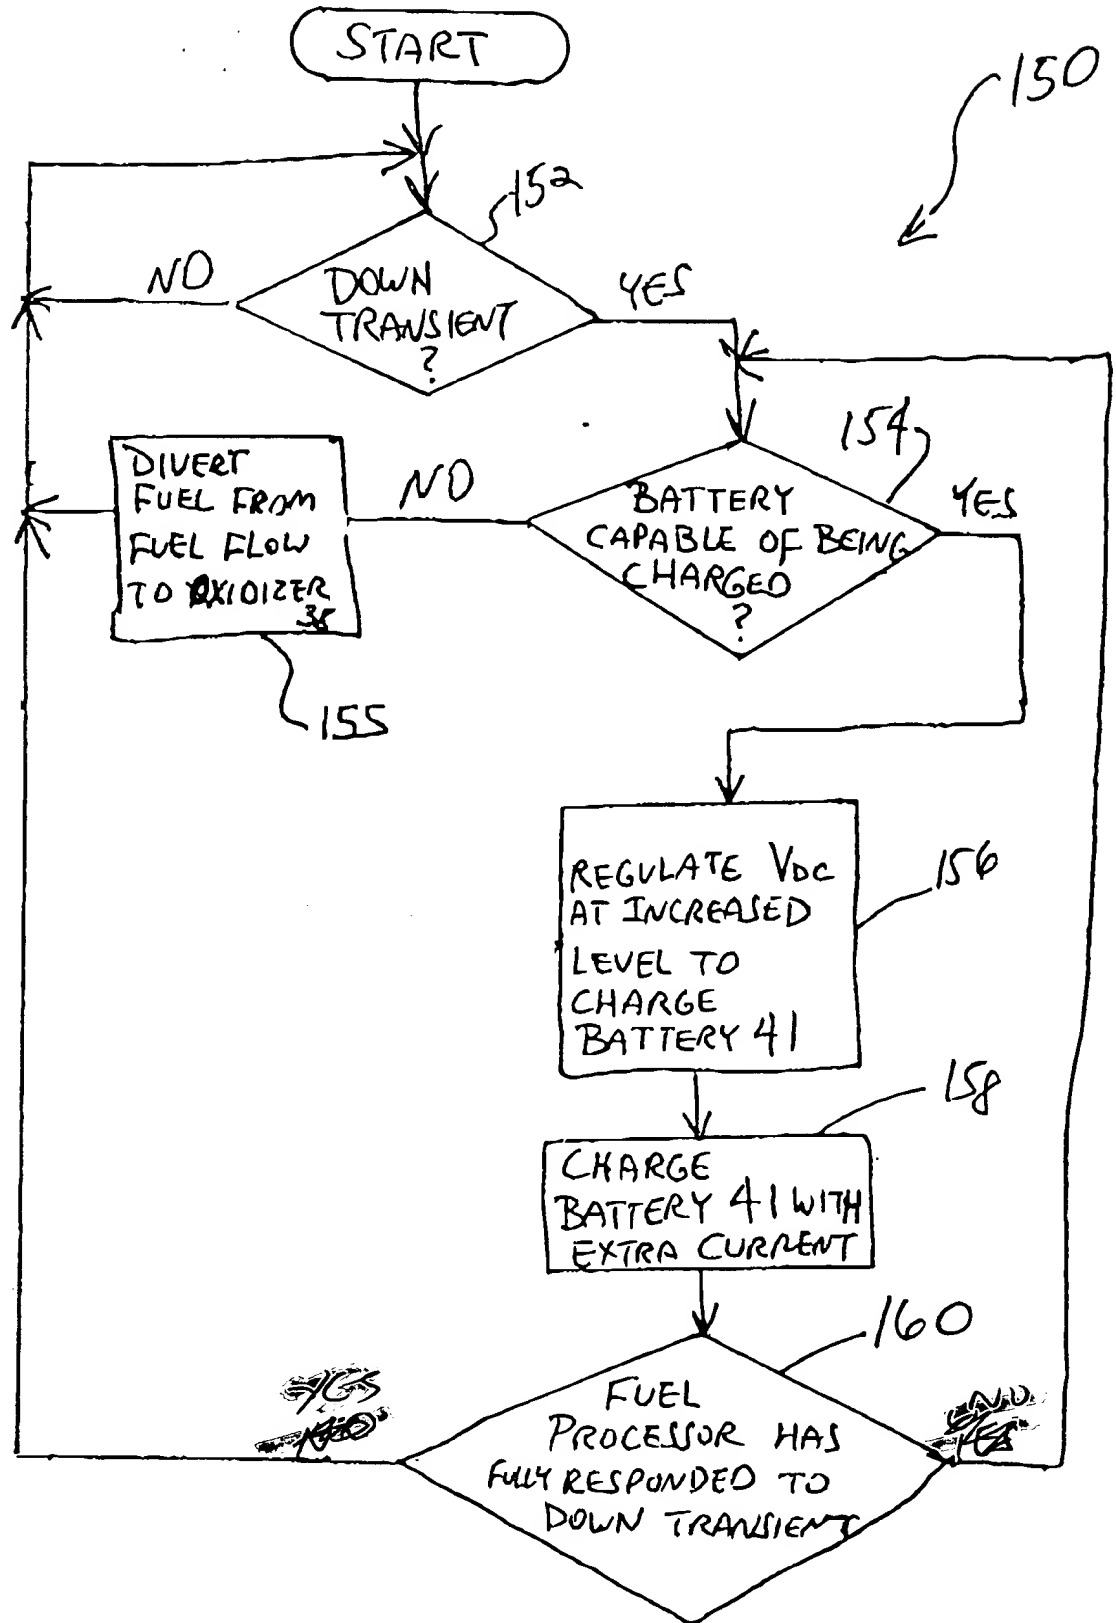 START
150
152
NO
DOWN
TRANSIENT
?
YES
154
DIVERT
FUEL FROM
FUEL FLOW
TO OXIDIZER
38
NO
BATTERY
CAPABLE OF BEING
CHARGED
?
YES
155
REGULATE VDC
AT INCREASED
LEVEL TO
CHARGE
BATTERY 41
156
158
CHARGE
BATTERY 41 WITH
EXTRA CURRENT
160
YES
NO
FUEL
PROCESSOR HAS
FULLY RESPONDED TO
DOWN TRANSIENT
NO
YES